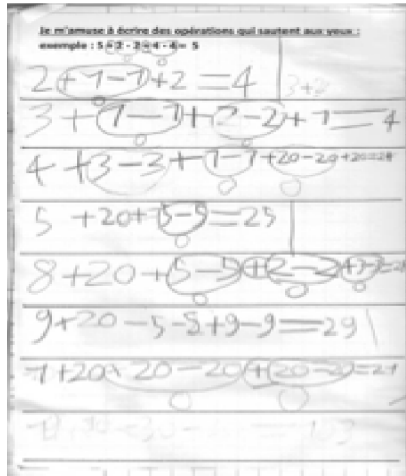 Je m'amuse à écrire des opérations qui sautent aux yeux :
exemple : 5 + 2 - 2 + 4 - 4 = 5
2 + 1 - 1 + 2 = 4
3 + 1 - 1 + 2 - 2 + 1 = 4
4 + 3 - 3 + 1 - 1 + 20 - 20 + 20 = 24
5 + 20 + 5 - 5 = 25
8 + 20 + 5 - 5 + 2 - 2
9 + 20 - 5 - 5 + 9 - 9 = 29
1 + 20 + 20 - 20 + 20 - 20 = 21